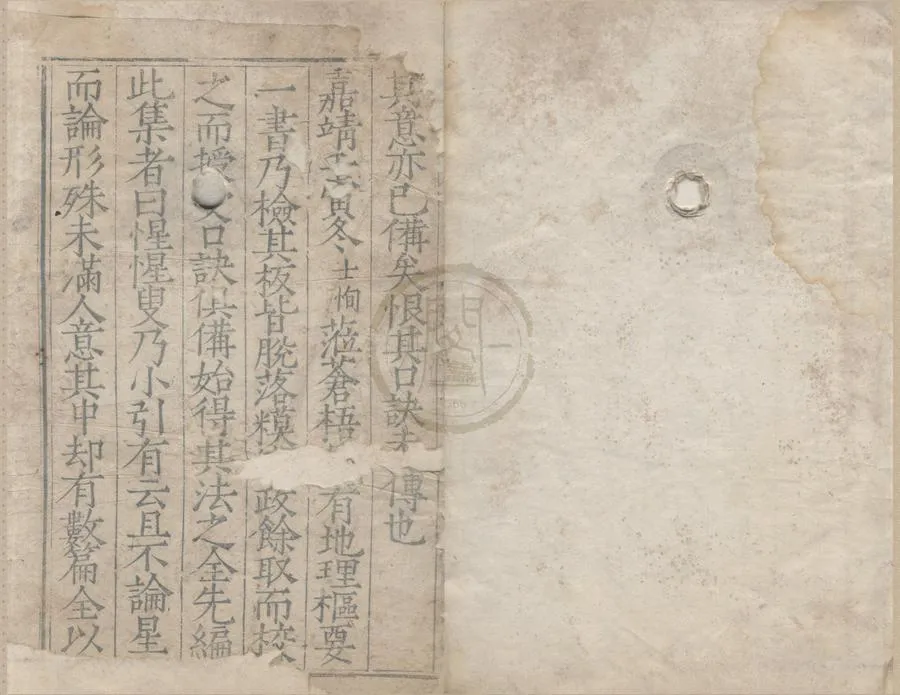 其意亦已備矣恨其口訣未傳也
嘉靖壬寅冬士恂蒞蒼梧有地理樞要
一書乃檢其板皆脫落糢政餘取而校
之而授口訣俱備始得其法之全先編
此集者曰惺惺叟乃小引有云且不論星
而論形殊未滿人意其中却有數篇全以